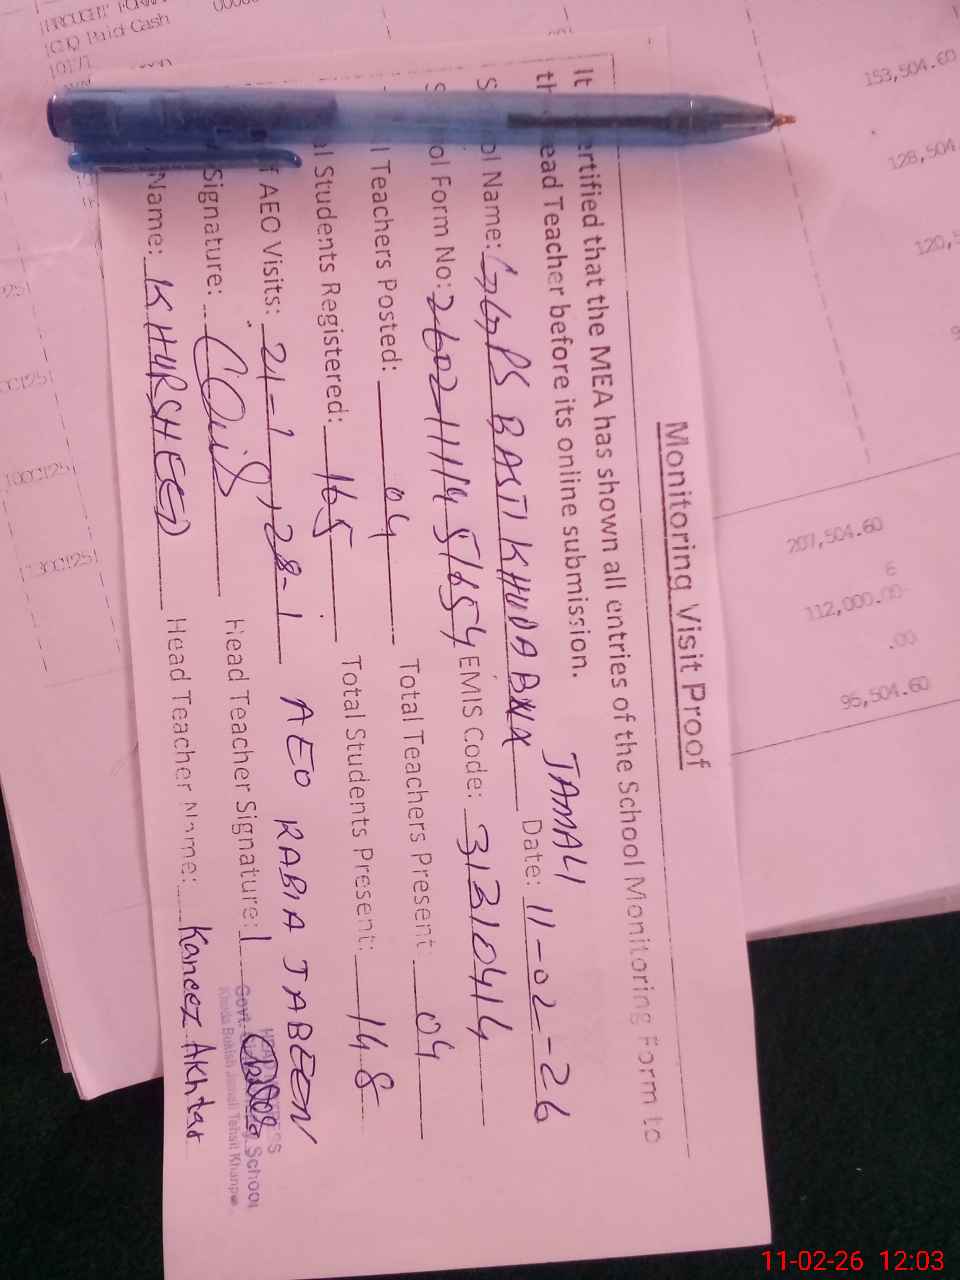 Monitoring Visit Proof
It ertified that the MEA has shown all entries of the School Monitoring Form to
th ead Teacher before its online submission.
JAMALI
S ol Name: GGPS BASTI KHUDA BNX Date: 11-02-26
S ol Form No: 2602111145165 4 EMIS Code: 31310414
l Teachers Posted: 04 Total Teachers Present 04
al Students Registered: 165 Total Students Present: 148
f AEO Visits: 21-1, 28-1 AEO RABIA JABEEN
Signature: Head Teacher Signature:
Name: KHURSHEED Head Teacher Name: Kaneez Akhtar
Govt. School
Khuda Bukhsh Jamali Tehsil Khanpur
Paid Cash
153,504.60
128,504
120,5
207,504.60
6
112,000.00
.00
95,504.60
11-02-26 12:03